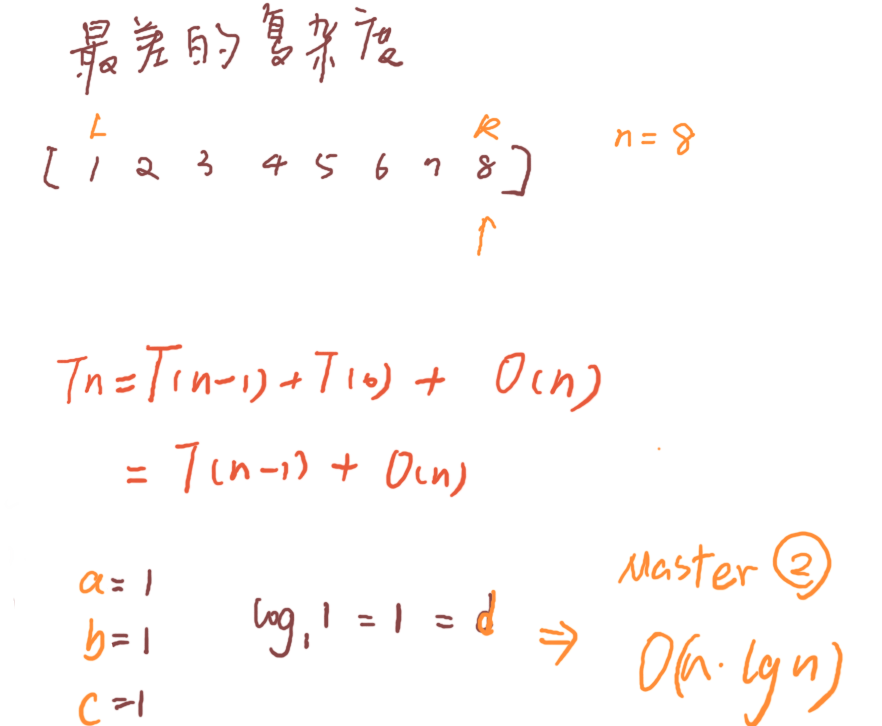 最差的复杂度
L R
[ 1 2 3 4 5 6 7 8 ] n = 8
↑
Tn = T(n-1) + T(0) + O(n)
= T(n-1) + O(n)
a = 1
b = 1
c = 1
log₁1 = 1 = d ⇒
Master ②
O(n·lgn)